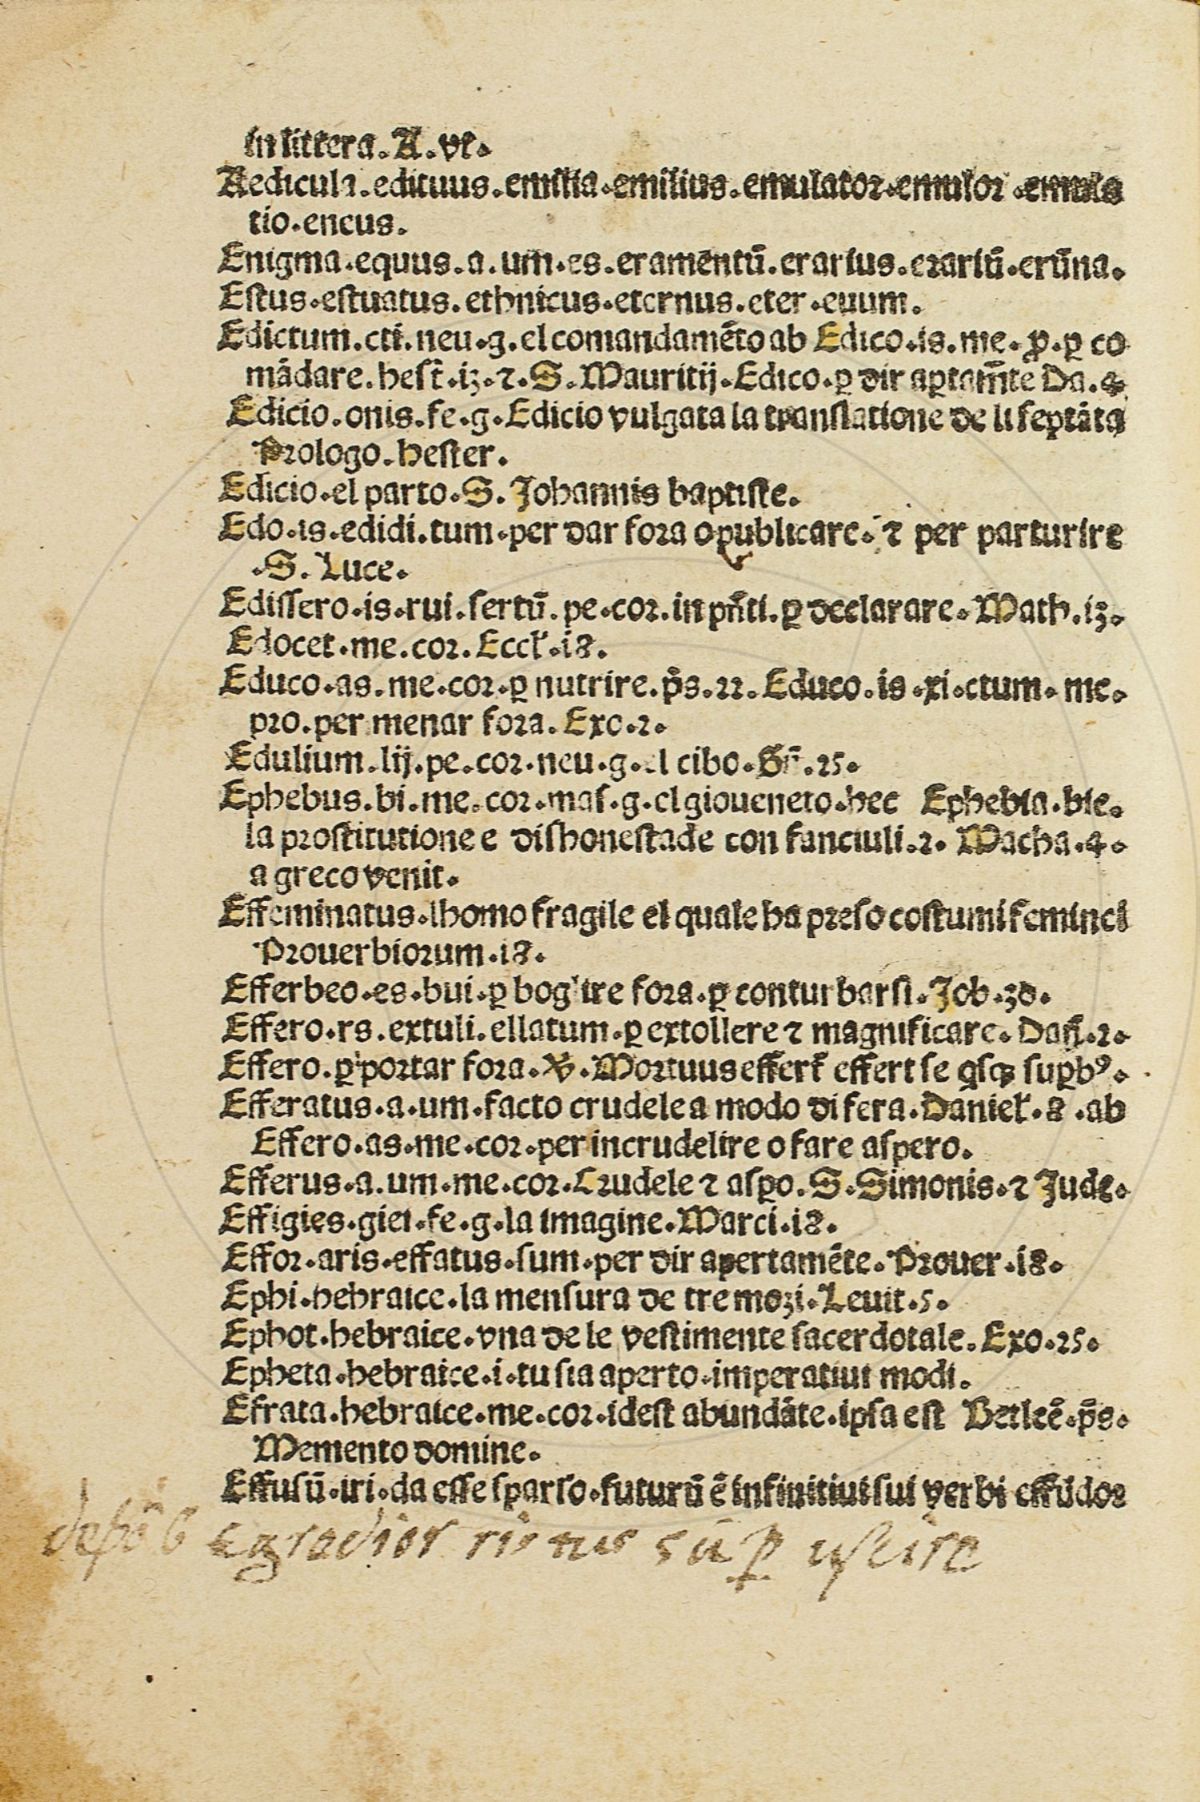 in littera. A. vt.
Aedicula. edituus. emilia. emilius. emulator. emulor. emula
tio. eneus.
Enigma. equus. a. um. es. eramentū. erarius. erariū. erūna.
Estus. estuatus. ethnicus. eternus. eter. euum.
Edictum. cti. neu. g. el comandamēto ab Edico. is. me. ꝓ. ꝑ co
mādare. hest̄. iz. ⁊. S. Mauritij. Edico. ꝑ dir aꝑtam̄te Da. 4
Edicio. onis. fe. g. Edicio vulgata la translatione de li septāta
Prologo. hester.
Edicio. el parto. S. Johannis baptiste.
Edo. is. edidi. tum. per dar fora o publicare. ⁊ per parturire
.S. Luce.
Edissero. is. rui. sertū. pe. cor. in pn̄ti. ꝑ declarare. Math. iz.
Edocet. me. cor. Eccl̄. i8.
Educo. as. me. cor. ꝑ nutrire. p̄s. 22. Educo. is. xi. ctum. me.
pro. per menar fora. Exo. 2.
Edulium. lij. pe. cor. neu. g. el cibo. Gn̄. 25.
Ephebus. bi. me. cor. mas. g. el gioueneto. hec Ephebia. bie.
la prostitutione e dishonestade con fanciuli. 2. Macha. 4.
a greco venit.
Effeminatus. lhomo fragile el quale ha preso costumi feminei
Prouerbiorum. i8.
Efferbeo. es. bui. ꝑ boglire fora. ꝑ conturbarsi. Job. 30.
Effero. rs. extuli. ellatum. ꝑ extollere ⁊ magnificare. Dan̄. 2.
Effero. ꝑ portar fora. Mortuus effert̄ effert se q̄sqꝫ suꝑbꝰ.
Efferatus. a. um. facto crudele a modo di fera. Daniel̄. 8. ab
Effero. as. me. cor. per incrudelire o fare aspero.
Efferus. a. um. me. cor. Crudele ⁊ asꝑo. S. Simonis. ⁊ Jude.
Effigies. giei. fe. g. la imagine. Marci. i8.
Effor. aris. effatus. sum. per dir apertamēte. Prouer. i8.
Ephi. hebraice. la mensura de tre mozi. Leuit. 5.
Ephot. hebraice. vna de le vestimente sacerdotale. Exo. 25.
Epheta. hebraice. i. tu sia aperto. imperatiui modi.
Efrata. hebraice. me. cor. idest abundāte. ipsa est Betleē. p̄s.
Memento domine.
Effusū. iri. da esse sparso. futurū ē infinitiui sui verbi effūdor
egradior ris tus sū ꝑ uscire